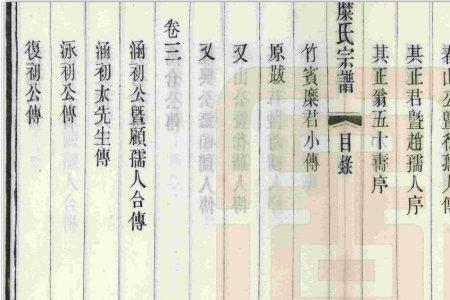 春山公暨徐孺人傳
其正君暨趙孺人序
其正翁五十壽序
糜氏宗譜 目錄
竹賓糜君小傳
原跋
又
又
卷三
涵初公暨顧孺人合傳
涵初太先生傳
泳初公傳
復初公傳